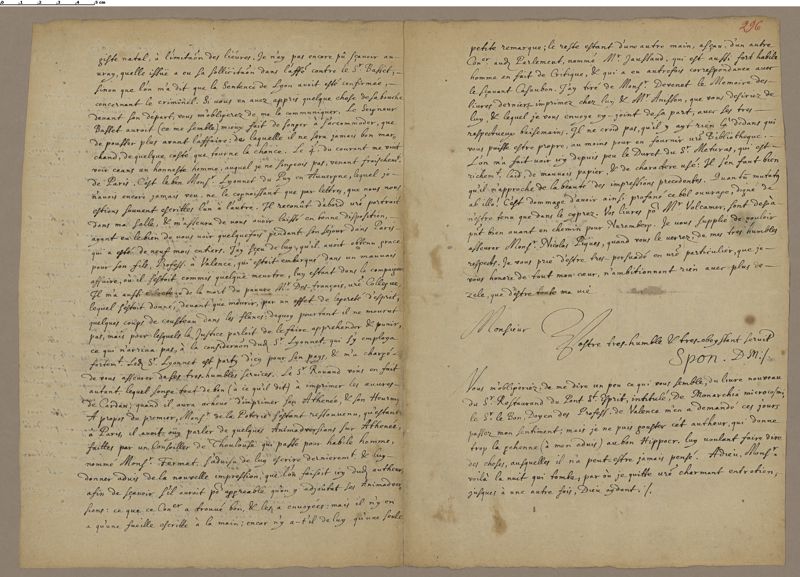 296
giste natal, à l'imita'on des lièvres. Je n'ay pas encore pû sçavoir au
vray, quelle issue a eu sa sollicita'on dans l'aff. contre le Sr. Basset,
sinon que l'on m'a dit que la Sentence de Lyon avoit esté confirmée,
concernant le criminel. Si vous en avez appris quelque chose de sa bouche
devant son départ, vous m'obligerez de me le communiquer. Le Seigneur
Basset auroit (ce me semble) mieux fait de songer à s'accommoder, que
de pousser plus avant l'affaire, de laquelle il ne sera jamais bon mar-
chand, de quelque costé que tourne la chance. Le 4. du courant me vint
voir ceans un honneste homme, auquel je ne songeois pas, venant fraischemt.
de Paris. C'est le bon Monsr. Lyonnet du Puy en Auvergne, lequel je
n'avois encore jamais veu, ne le connoissant que par lettres, que nous nous
estions souvent escrittes l'un à l'autre. Il reconût d'abord vre portrait
dans ma Salle, & m'asseura de vous avoir laissé en bonne disposition,
ayant eu le bien de vous voir quelquefois pendant son sejour dans Paris
qui a esté de neuf mois entiers. J'ay sçeu de luy, qu'il avoit obtenu grace
pour son fils, Profess. à Valence, qui estoit embarqué dans un mauvais
affaire, où il s'estoit commis quelque meurtre, luy estant dans la compagnie
Il m'a aussi de la mort du pauvre Mr. Des-françois, vre Collegue,
lequel s'estoit donné, devant que mourir, par un effet de legereté d'esprit,
quelques coups de cousteau dans les flancs; dequoy pourtant il ne mourut
pas, mais pour lesquels la Justice parloit de le faire apprehender & punir,
ce qui n'arriva pas, à la considera'on dud. Sr. Lyonnet, qui s'y employa
fortemt. Led. Sr. Lyonnet est party d'icy pour son pays, & m'a chargé
de vous asseurer de ses tres humbles services. Le Sr. Ravaud vous en fait
autant, lequel songe tout de bon (à ce qu'il dit) à imprimer les œuvres
de Cardan, quand il aura achevé d'imprimer son Athenée, & son Heurnius.
A propos du premier, Monsr. de la Poterie s'estant ressouvenu, qu'estant
à Paris, il avoit ouy parler de quelques Animadversions sur Athenée,
faittes par un Conseiller de Thoulouse qui passe pour habile homme,
nommé Monsr. Farmat. S'advisa de luy escrire dernierement & luy
donner advis de la nouvelle impression, que l'on faisoit icy dud. autheur
afin de sçavoir s'il auroit pr agreable qu'on y adjoutat ses Animadver-
sions: ce que ce Coner a trouvé bon, & les a envoyées: mais il n'y en
a qu'une fueille escritte à la main; encor n'y a-t'il de luy qu'une seule
petite remarque; le reste estant d'une autre main, asçav. d'un autre
Coner aud. Parlement, nommé Mr. Jaussaud, qui est aussi fort habile
homme en fait de Critique, & qui a en autrefois correspondance avec
le sçavant Casaubon. J'ay tiré de Monsr. Devenet le Memoire des
livres derniers imprimez chez luy & Mr. Anisson, que vous desirez de
luy, & lequel je vous envoye cy-joint de sa part, avec ses tres
respectueux baisemains. Il ne croid pas, qu'il y ayt rien là dedans qui
vous puisse estre propre, au moins pour en fournir vre Bibliotheque.
L'on m'a fait voir icy depuis peu le Duret du Sr. Meturas, qui est
richemt. laid, de mauvais papier & de charactere usé. Il s'en faut bien
qu'il n'approche de la beauté des impressions precedentes. Quantum mutatus
ab illo! C'est dommage d'avoir ainsi profané ce bel ouvrage, digne de
n'estre tenu que dans le cyprez. Vos livres pr Mr. Volcamer, sont desja
pièt bien avant en chemin pour Nuremberg. Je vous supplie de vouloir
asseurer Monsr. Nicolas Piques, quand vous le verrez, de mes tres humbles
respects. Je vous prie d'estre tres-persuadé en vre particulier, que je
vous honore de tout mon cœur, n'ambitionnant rien avec plus de
zele, que d'estre toute ma vie
Monsieur Vostre tres-humble & tres-obeyssant servitr
Spon. D.M./.
Vous m'obligeriez de me dire un peu ce qui vous semble du livre nouveau
du Sr. Restaurand du Pont St. Esprit, intitulé, De Monarchia microcosmi,
le Sr. le Bon, Doyen des Profess. de Valence m'en a demandé ces jours
passez mon sentiment; mais je ne puis gouster cet autheur, qui donne
trop la gehenne (à mon advis) au bon Hippocr. luy voulant faire dire
des choses, ausquelles il n'a peut estre jamais pensé. Adieu, Monsr.
voilà la nuit qui tombe, par où je quitte vre charmant entretien,
jusques à une autre fois, Dieu aydant./.